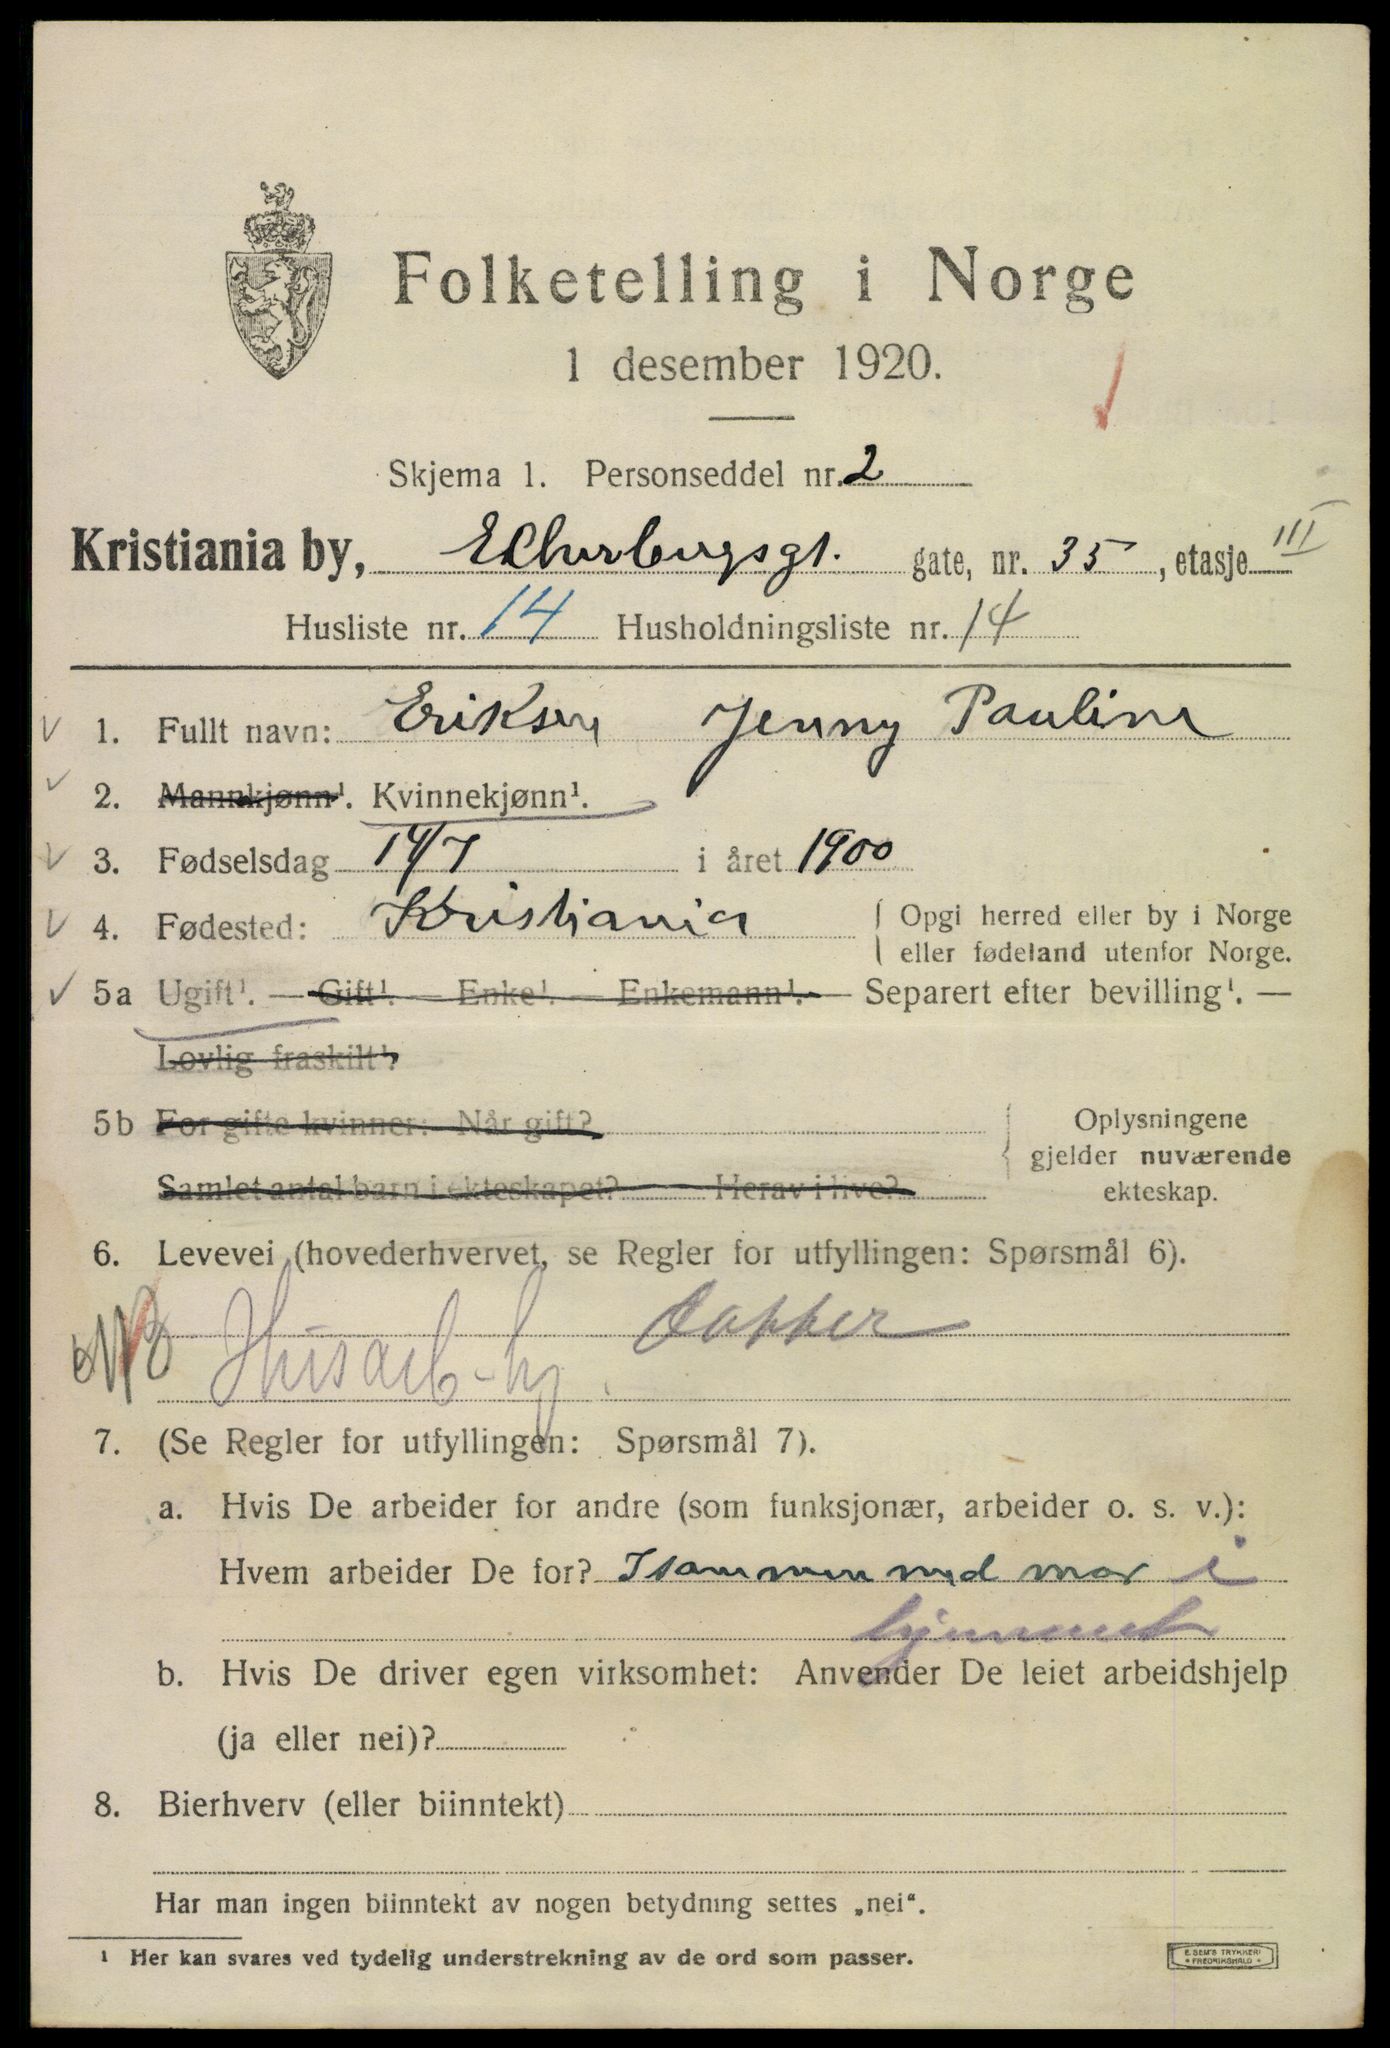 Folketelling i Norge
1 desember 1920.
Skjema 1. Personseddel nr. 2
Kristiania by, gate, nr. 35, etasje III
Husliste nr. 14 Husholdningsliste nr. 14
1. Fullt navn: Eriksen Jenny Pauline
2. Mannkjønn¹. Kvinnekjønn¹.
3. Fødselsdag 14/7 i året 1900
4. Fødested: Kristiania Opgi herred eller by i Norge
eller fødeland utenfor Norge.
5a Ugift¹. — Gift¹. — Enke¹. — Enkemann¹. — Separert efter bevilling¹. —
Lovlig fraskilt¹.
5b For gifte kvinner: Når gift? Oplysningene
gjelder nuværende
Samlet antal barn i ekteskapet? Herav i live?
ekteskap.
6. Levevei (hovederhvervet, se Regler for utfyllingen: Spørsmål 6).
Husarb-hj.
7. (Se Regler for utfyllingen: Spørsmål 7).
a. Hvis De arbeider for andre (som funksjonær, arbeider o. s. v.):
Hvem arbeider De for? Isammen med mor i
hjemmet
b. Hvis De driver egen virksomhet: Anvender De leiet arbeidshjelp
(ja eller nei)?
8. Bierhverv (eller biinntekt)
Har man ingen biinntekt av nogen betydning settes „nei“.
¹ Her kan svares ved tydelig understrekning av de ord som passer.
E. SEM'S TRYKKERI
FREDRIKSHALD